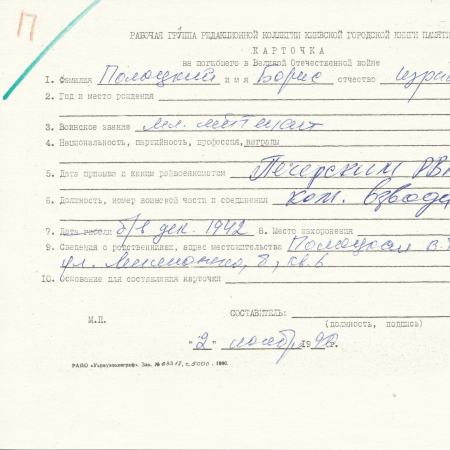 П
РАБОЧАЯ ГРУППА РЕДАКЦИОННОЙ КОЛЛЕГИИ КИЕВСКОЙ ГОРОДСКОЙ КНИГИ ПАМЯТИ
КАРТОЧКА
на погибшего в Великой Отечественной войне
1. Фамилия Полоцкий имя Борис отчество
2. Год и место рождения
3. Воинское звание мл. лейтенант
4. Национальность, партийность, профессия, награды
5. Дата призыва и каким райвоенкоматом Печерским РВ
6. Должность, номер воинской части и соединения ком. взвода
7. Дата гибели б/в дек. 1942 8. Место захоронения
9. Сведения о родственниках, адрес местожительства Полоцкая В.
ул. кв. 6
10. Основание для составления карточки
СОСТАВИТЕЛЬ:
М.П. (должность, подпись)
"2" ноября 1990г.
РАПО «Укрвузполиграф». Зак. т. 5000. 1990.